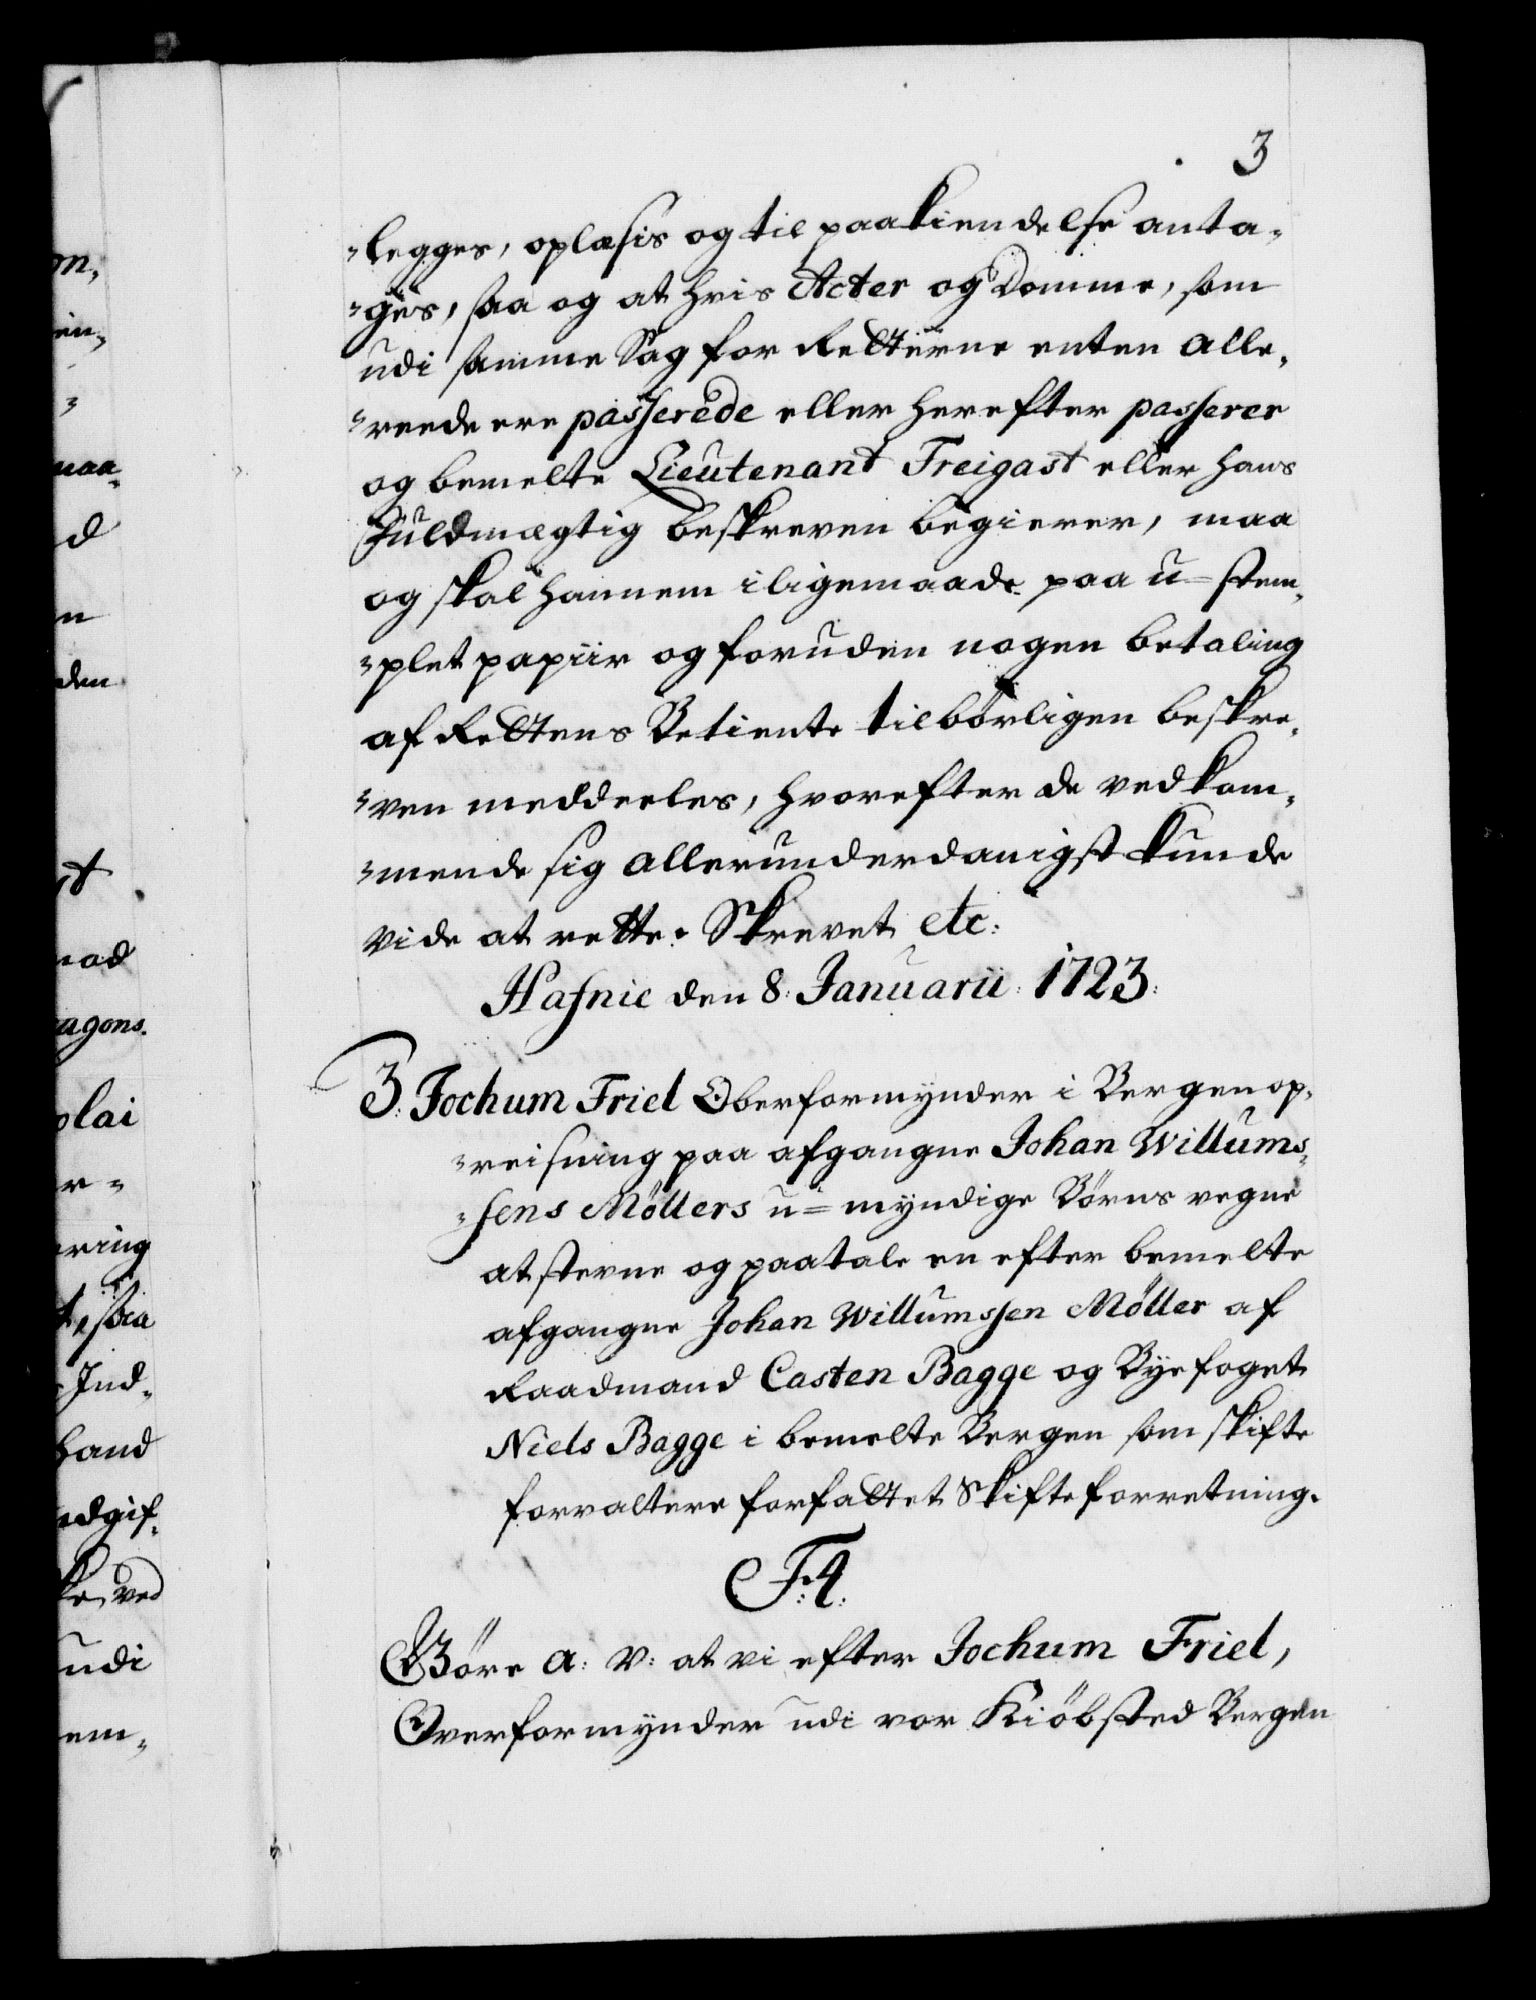 3
-legges, oplæsis og til paakiendelse anta-
-ges, saa og at hvis Acter og Domme, som
udi samme Sag for Retterne enten alle-
-reede ere passerede eller herefter passerer
og bemelte Lieutenant Freigast eller hans
Fuldmægtig beskreven begierer, maa
og skal hannem iligemaade paa u=stem-
-plet papiir og foruden nogen betaling
af Rettens Betiente tilbørligen beskre-
-ven meddeeles, hvorefter de vedkom-
-mende sig allerunderdanigst kunde
vide at rette. Skrevet etc:
Hafnie den 8: Januarii: 1723:
3: Jochum Friel Oberformynder i Bergen op-
-reisning paa afgangne Johan Willums-
-sens Möllers u=myndige Börns vegne
at stevne og paatale en efter bemelte
afgangne Johan Willumssen Möller af
Raadmand Casten Bagge og Byefoget
Niels Bagge i bemelte Bergen som skifte
forvaltere forfattet Skifteforretning.
F:4:
Giöre a: v: at vi efter Jochum Friel,
Overformynder udi vor Kiöbsted Bergen
on,
en,
maa-
d
n
den
nod
agons.
olai
r-
ering
Ind-
hand
edgif-
ved
udi
em-